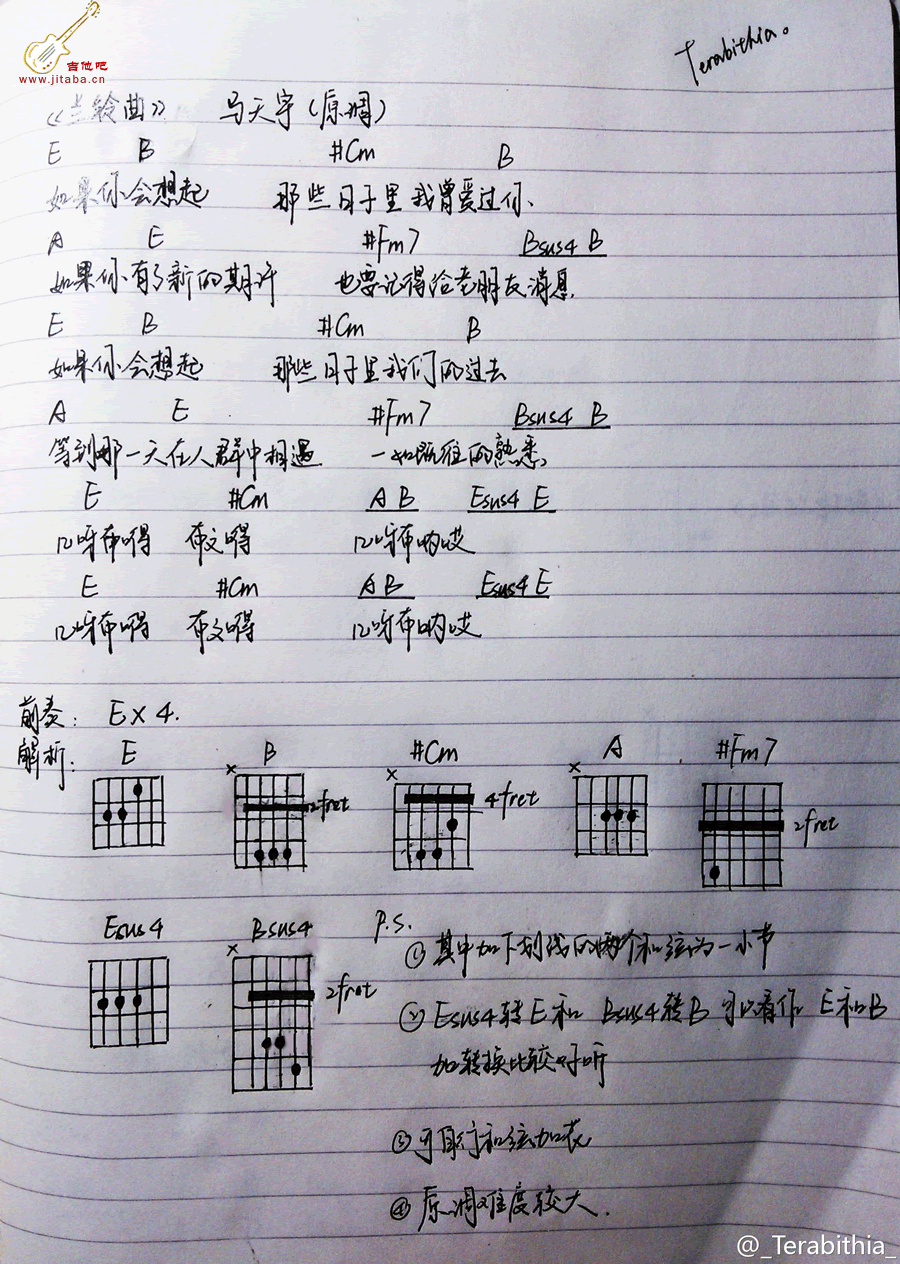 吉他吧
www.jitaba.cn
Terabithia。
《兰铃曲》 马天宇(原调)
E B #Cm B
如果你会想起 那些日子里我曾爱过你、
A E #Fm7 Bsus4 B
如果你有了新的期许 也要记得给老朋友消息.
E B #Cm B
如果你会想起 那些日子里我们的过去
A E #Fm7 Bsus4 B
等到那一天在人群中相遇 一如既往的熟悉、
E #Cm A B Esus4 E
口呀布嘚 布文嘚 口呀布呐哎
E #Cm A B Esus4 E
口呀布嘚 布文嘚 口呀布呐哎
前奏: E×4.
解析:
E B #Cm A #Fm7
× × ×
2fret 4fret 2fret
Esus4 Bsus4
×
2fret
P.S.
①其中加下划线的两个和弦为一小节
②Esus4转E和 Bsus4转B 可以看作 E和B
加转换比较好听
③可自行和弦加花
④原调难度较大.
@_Terabithia_